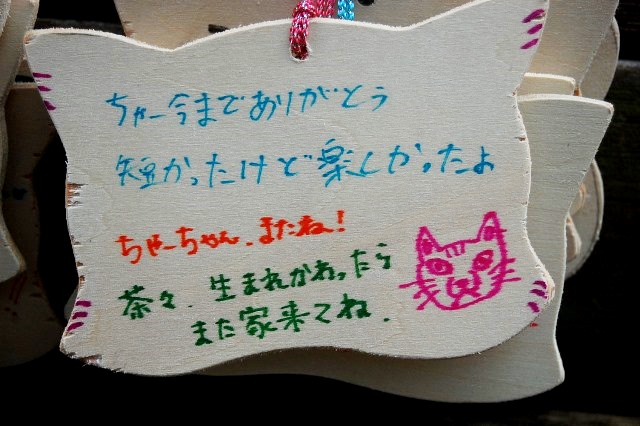 ちゃー今までありがとう
短かったけど楽しかったよ
ちゃーちゃん、またね!
茶々、生まれかわったら
また家来てね.